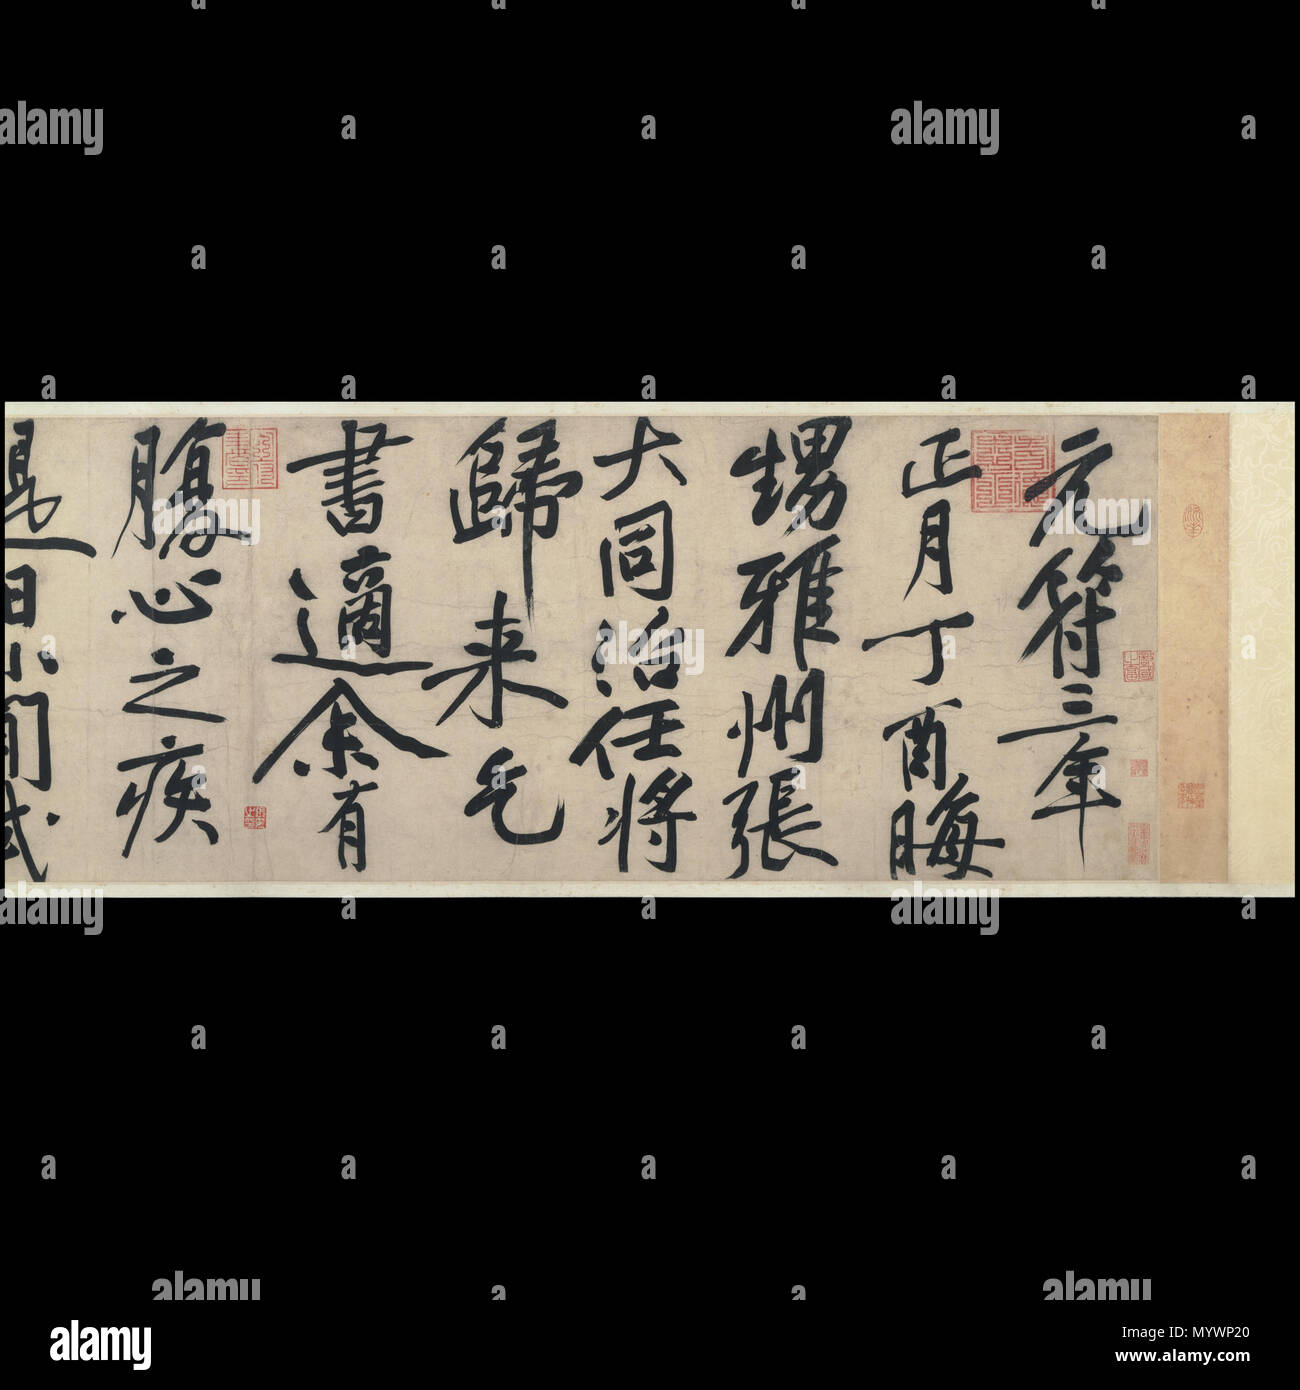 元符三年
正月丁酉晦
甥雅州張
大同治任將
歸来乞
書適余有
腹心之疾
是日小閒試
alamy
Image ID: MYWP20
www.alamy.com